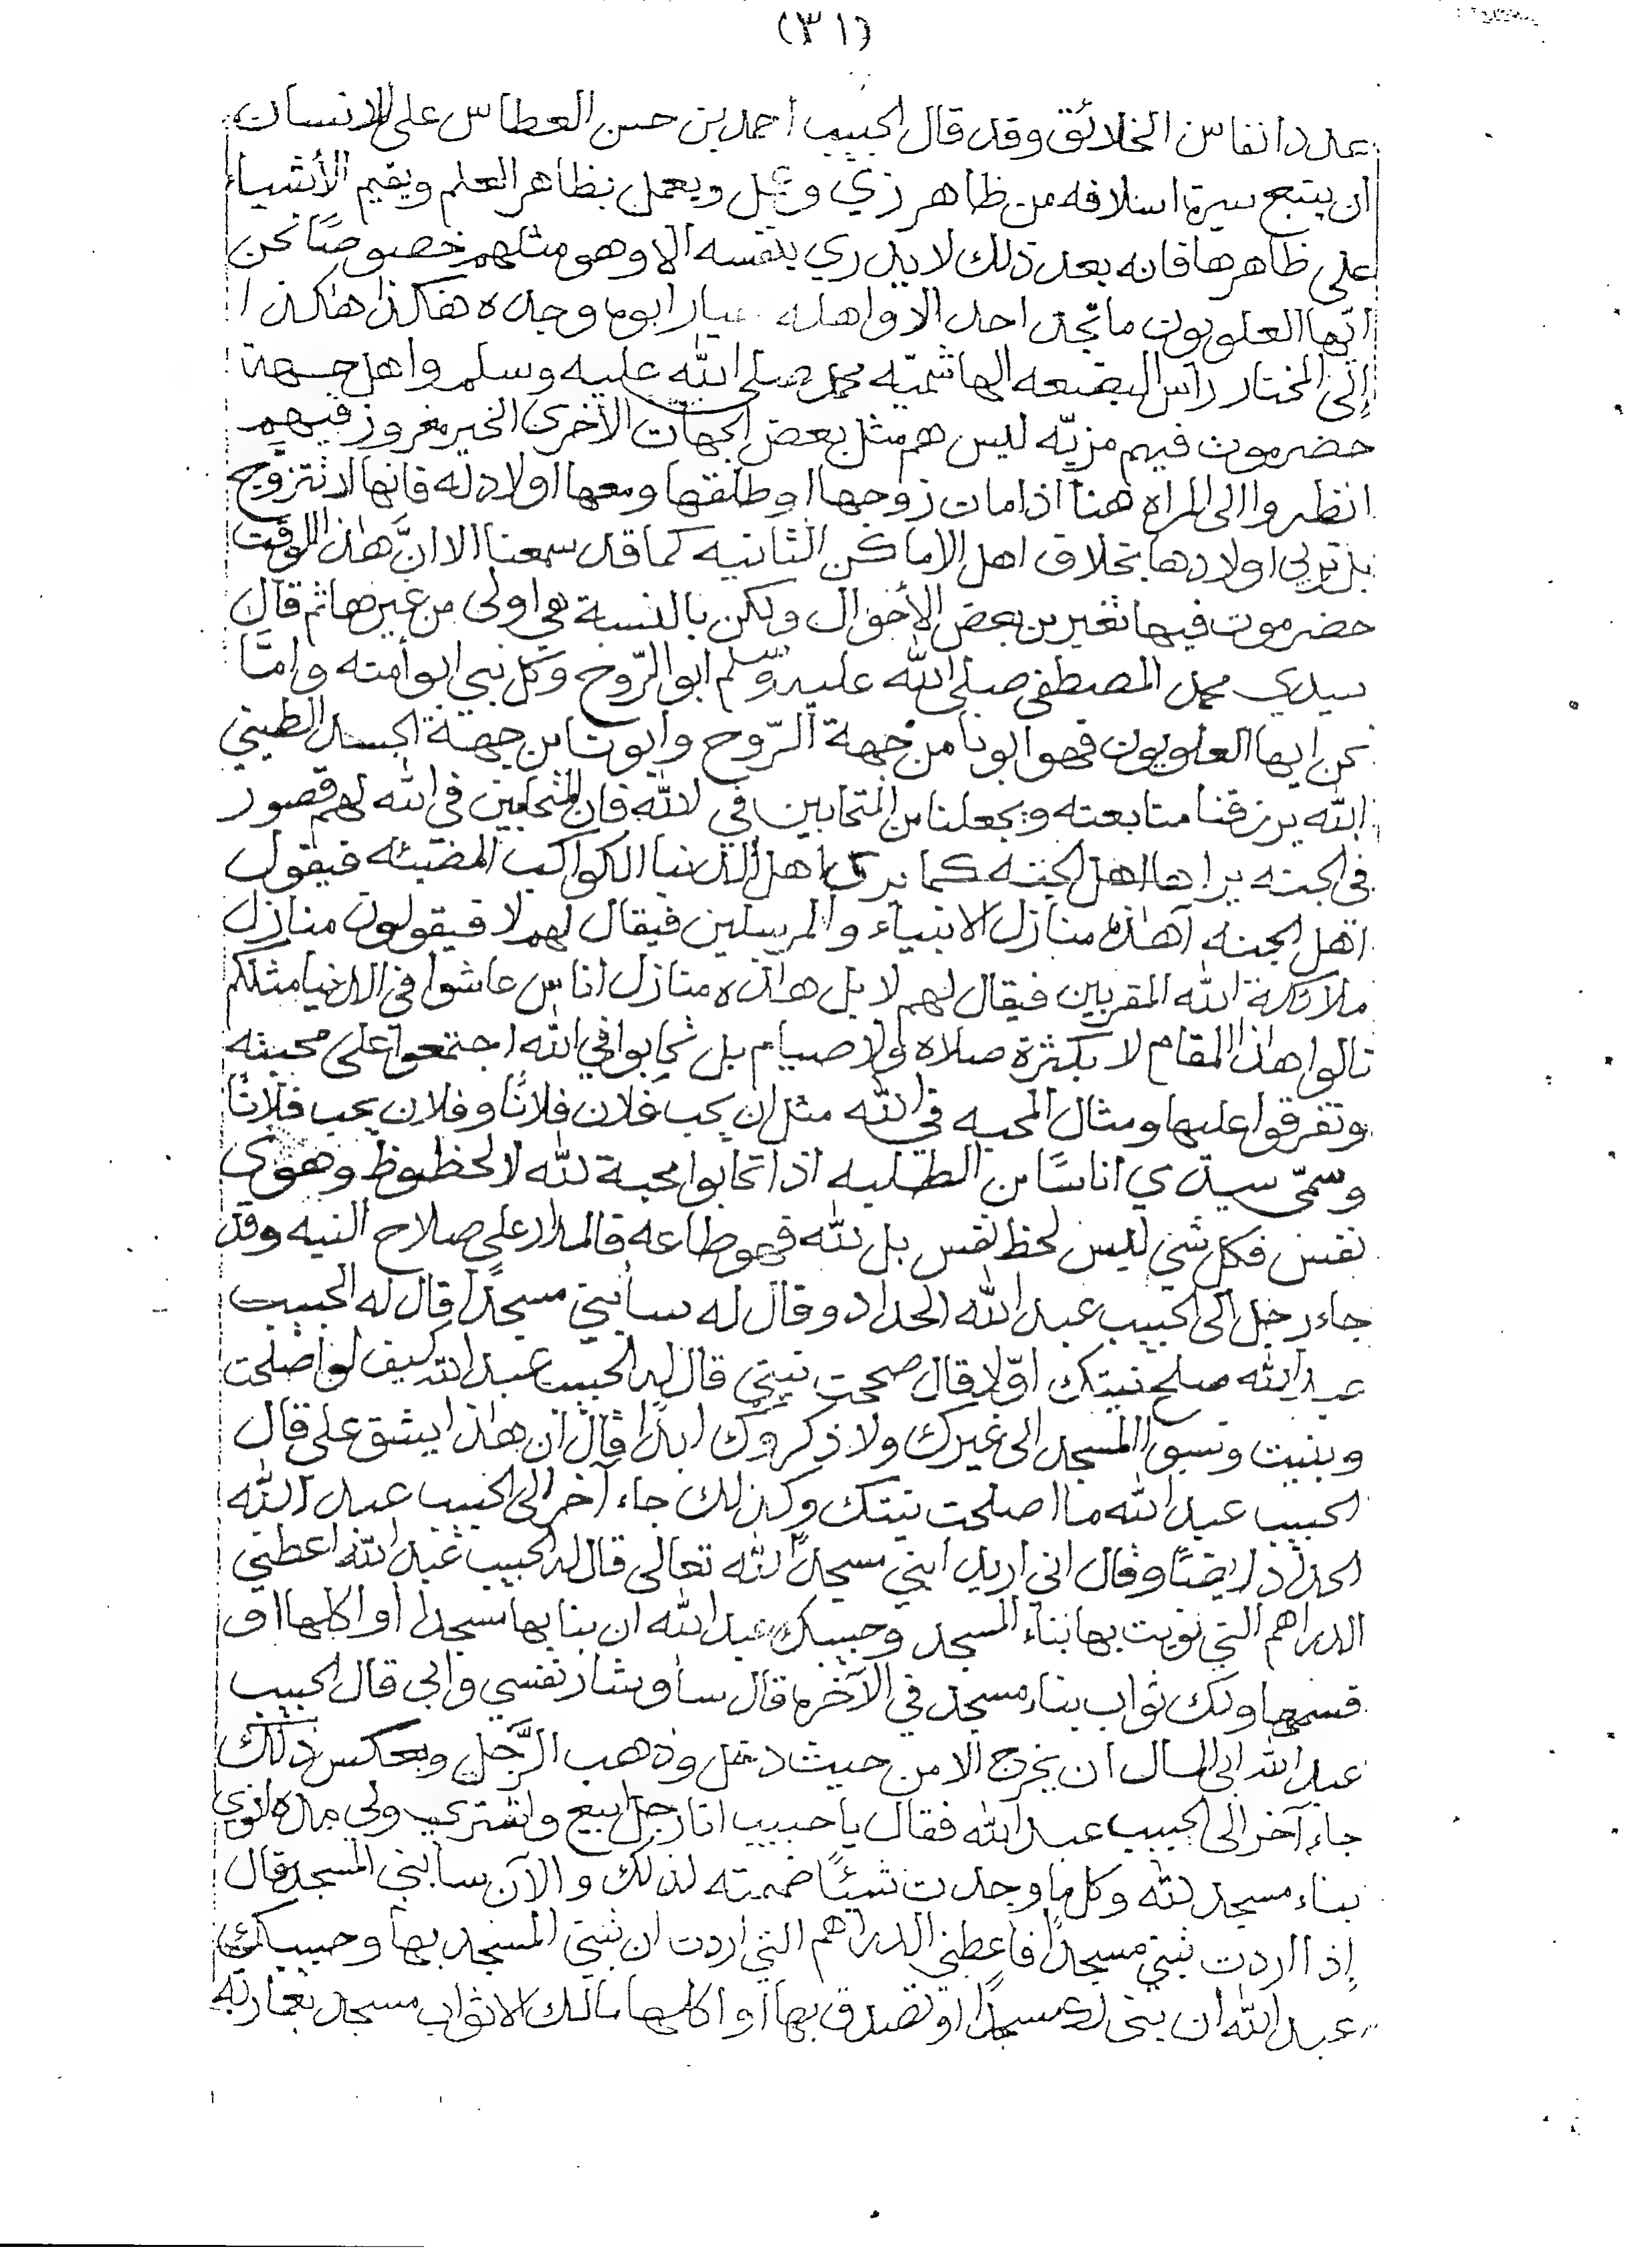 (٣١)
عدد انفاس الخلائق وقد قال الحبيب احمد بن حسن العطاس على الانسان
ان يتبع سيرة اسلافه من ظاهر زي وعمل ويعمل بظاهر العلم ويقيم الأشياء
على ظاهرها فانه بعد ذلك لا يدري بنفسه الا وهو مثلهم خصوصًا نحن
ايها العلويون ما تجد احد الا واهله خيار ابوه وجده هكذا هكذا
إلى المختار راس البضعه الهاشميّه محمد صلى الله عليه وسلم واهل جهة
حضرموت فيهم مزيّه ليس هم مثل بعض الجهات الأخرى الخير مغروز فيهم
انظروا الى المراه هنا اذا مات زوجها او طلقها ومعها اولاد له فانها لا تتزوّج
بل تربي اولادها بخلاف اهل الاماكن الثانيه كما قد سمعنا الا انَّ هذا الوقت
حضرموت فيها تغير من بعض الأحوال ولكن بالنسبة هي اولى من غيرها ثم قال
سيدي محمد المصطفى صلى الله عليه وسلم ابو الرّوح وكل نبي ابو أمته وامّا
نحن ايها العلويون فهو ابونا من جهة الرّوح وابونا من جهة الجسد الطيني
الله يرزقنا متابعته ويجعلنا من المتحابين في الله فان المتحابين في الله لهم قصور
في الجنه يراها اهل الجنه كما يرى اهل الدنيا الكواكب المضيئه فيقول
اهل الجنه آهذه منازل الانبياء والمرسلين فيقال لهم لا فيقولون منازل
ملائكة الله المقربين فيقال لهم لا بل هذه منازل اناس عاشوا في الدنيا مثلكم
نالوا هذا المقام لا بكثرة صلاه ولا صيام بل تحابوا في الله اجتمعوا على محبته
وتفرقوا عليها ومثال المحبه في الله مثل ان يحب فلان فلانًا وفلان يحب فلانًا
وسمّى سيدي اناسًا من الطلبه اذا تحابوا محبة لله لا لحظوظ وهوى
نفس فكل شي ليس لحظ نفس بل لله فهو طاعه فالمدار على صلاح النيه وقد
جاء رجل الى الحبيب عبد الله الحداد وقال له سأبني مسجدًا قال له الحبيب
عبد الله صلح نيتك اوّلا قال صححت نيتي قال له الحبيب عبد الله كيف لو اصلحت
وبنيت ونسبوا المسجد الى غيرك ولا ذكروك ابدًا قال ان هذا يشق علي قال
الحبيب عبد الله ما اصلحت نيتك وكذلك جاء آخر الى الحبيب عبد الله
الحداد ايضًا وقال اني اريد ابني مسجدًا لله تعالى قال له الحبيب عبد الله اعطني
الدراهم التي نويت بها بناء المسجد وحبيبك عبد الله ان بنا بها مسجدا أو اكلها او
قسمها ولك ثواب بناء مسجد في الآخره قال ساوشار نفسي وابى قال الحبيب
عبد الله ابى المال ان يخرج الا من حيث دخل وذهب الرَّجل وبعكس ذلك
جاء آخر الى الحبيب عبد الله فقال يا حبيب انا رجل ابيع واشتري ولي مده انوي
بناء مسجد لله وكل ما وجدت شيئًا ضممته لذلك والآن سابني المسجد قال
إذا اردت تبني مسجدًا فاعطني الدراهم التي اردت ان تبني المسجد بها وحبيبك
عبد الله ان بنى لك مسجدًا او تصدق بها أو اكلها مالك الا ثواب مسجد